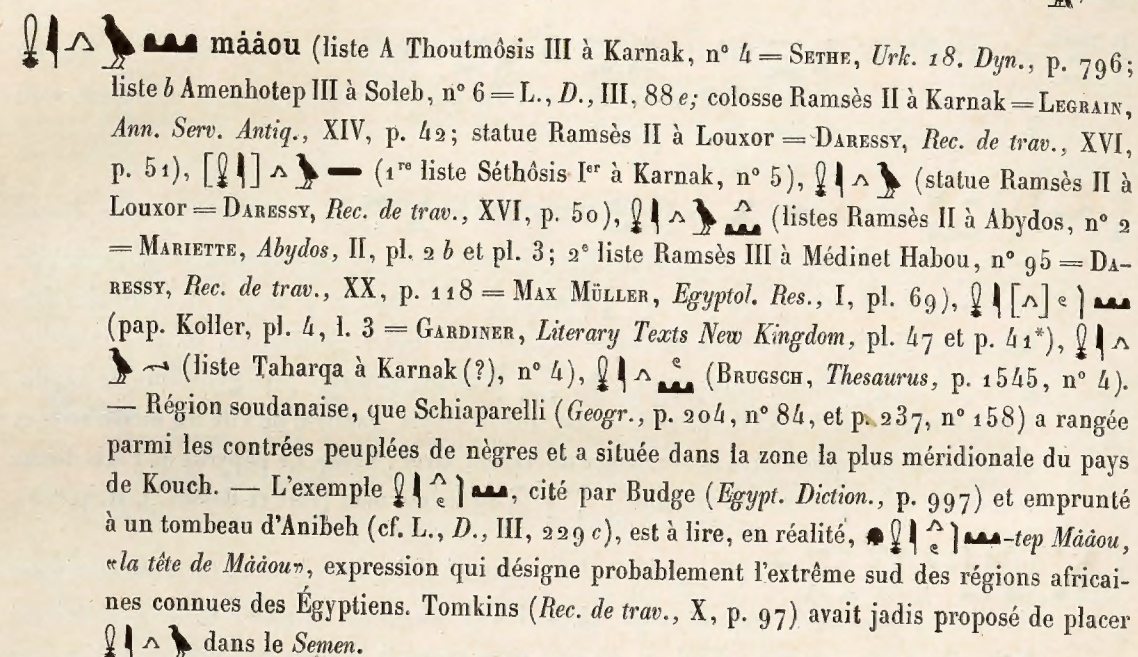 mȧȧou (liste A Thoutmôsis III à Karnak, n° 4 = SETHE, Urk. 18. Dyn., p. 796;
liste b Amenhotep III à Soleb, n° 6 = L., D., III, 88 e; colosse Ramsès II à Karnak = LEGRAIN,
Ann. Serv. Antiq., XIV, p. 42; statue Ramsès II à Louxor = DARESSY, Rec. de trav., XVI,
p. 51), [ ] (1re liste Séthôsis Ier à Karnak, n° 5), (statue Ramsès II à
Louxor = DARESSY, Rec. de trav., XVI, p. 50), (listes Ramsès II à Abydos, n° 2
= MARIETTE, Abydos, II, pl. 2 b et pl. 3; 2e liste Ramsès III à Médinet Habou, n° 95 = DA-
RESSY, Rec. de trav., XX, p. 118 = MAX MÜLLER, Egyptol. Res., I, pl. 69), [ ]
(pap. Koller, pl. 4, l. 3 = GARDINER, Literary Texts New Kingdom, pl. 47 et p. 41*),
(liste Taharqa à Karnak (?), n° 4), (BRUGSCH, Thesaurus, p. 1545, n° 4).
— Région soudanaise, que Schiaparelli (Geogr., p. 204, n° 84, et p. 237, n° 158) a rangée
parmi les contrées peuplées de nègres et a située dans la zone la plus méridionale du pays
de Kouch. — L'exemple , cité par Budge (Egypt. Diction., p. 997) et emprunté
à un tombeau d'Anibeh (cf. L., D., III, 229 c), est à lire, en réalité, -tep Mȧȧou,
«la tête de Mȧȧou», expression qui désigne probablement l'extrême sud des régions africai-
nes connues des Égyptiens. Tomkins (Rec. de trav., X, p. 97) avait jadis proposé de placer
dans le Semen.